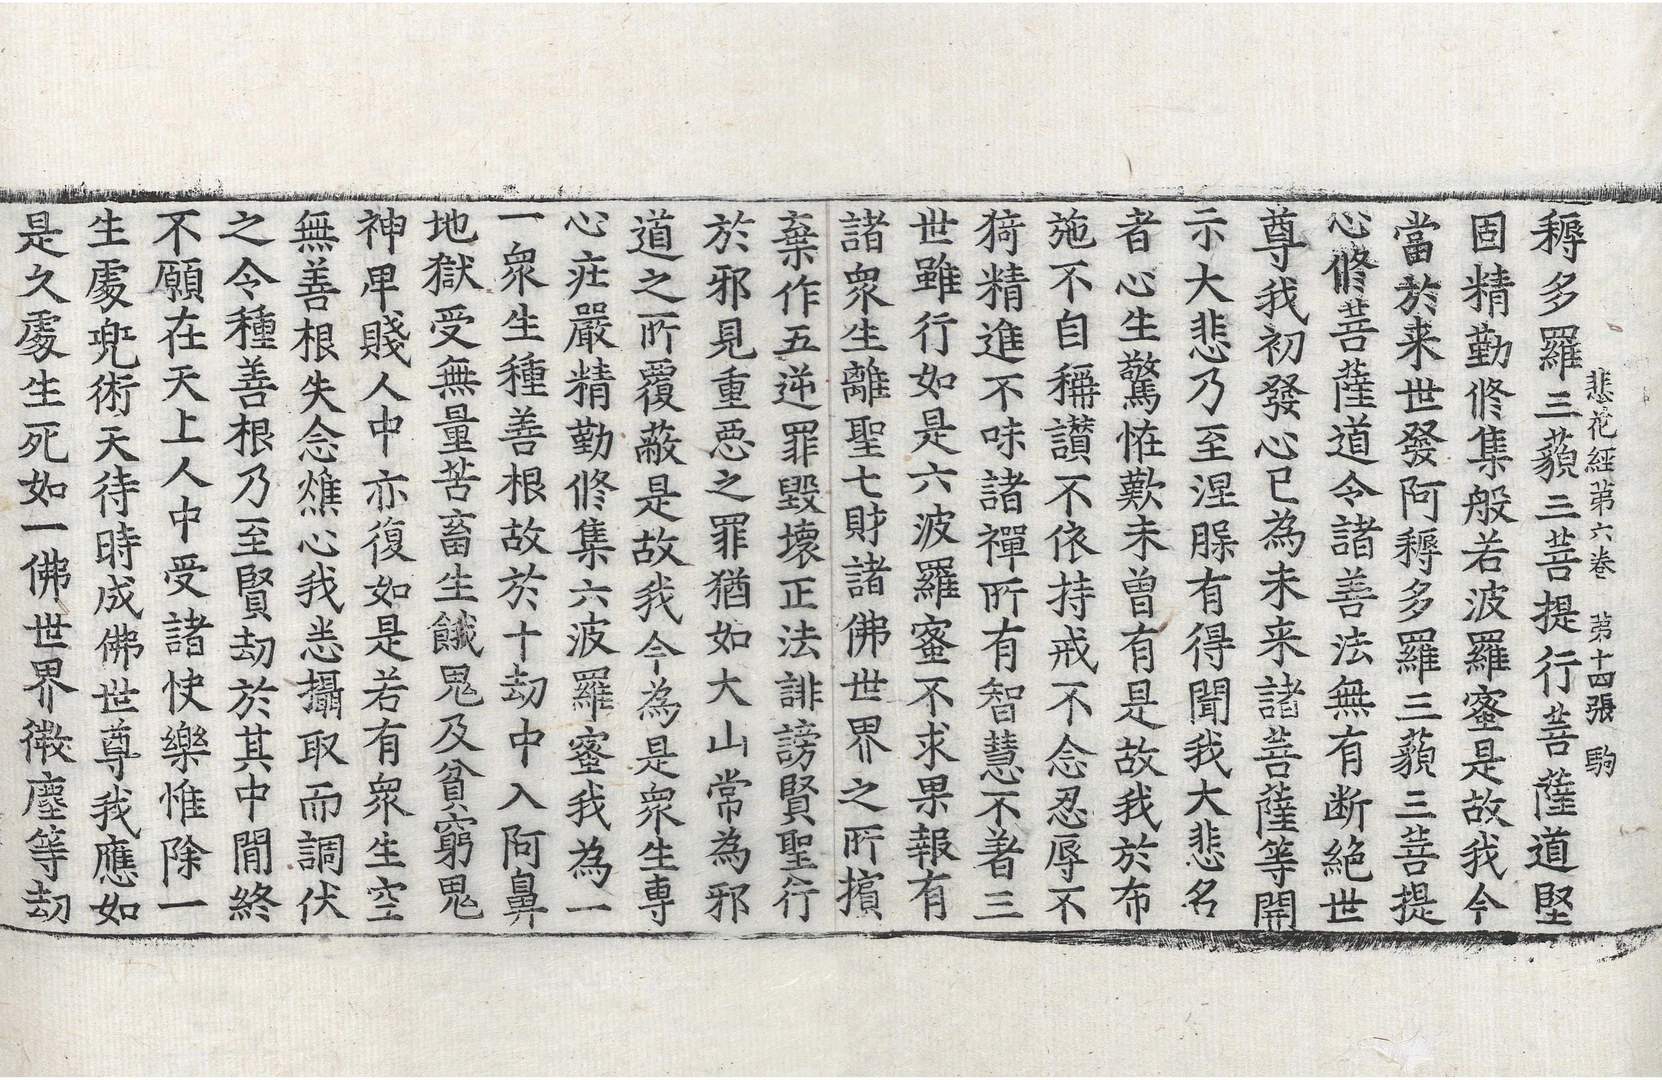 悲花經第六卷 第十四張 駒
耨多羅三藐三菩提行菩薩道堅
固精勤修集般若波羅蜜是故我今
當於来世發阿耨多羅三藐三菩提
心修菩薩道令諸善法無有断絶世
尊我初發心已為未来諸菩薩等開
示大悲乃至涅槃有得聞我大悲名
者心生驚恠歎未曽有是故我於布
施不自稱讃不依持戒不念忍辱不
猗精進不味諸禪所有智慧不著三
世雖行如是六波羅蜜不求果報有
諸衆生離聖七財諸佛世界之所擯
棄作五逆罪毀壊正法誹謗賢聖行
於邪見重惡之罪猶如大山常為邪
道之所覆蔽是故我今為是衆生専
心莊嚴精勤修集六波羅蜜我為一
一衆生種善根故於十劫中入阿鼻
地獄受無量苦畜生餓鬼及貧窮鬼
神卑賤人中亦復如是若有衆生空
無善根失念燋心我悉攝取而調伏
之令種善根乃至賢劫於其中閒終
不願在天上人中受諸快樂惟除一
生處兜術天待時成佛世尊我應如
是久處生死如一佛世界微塵等劫